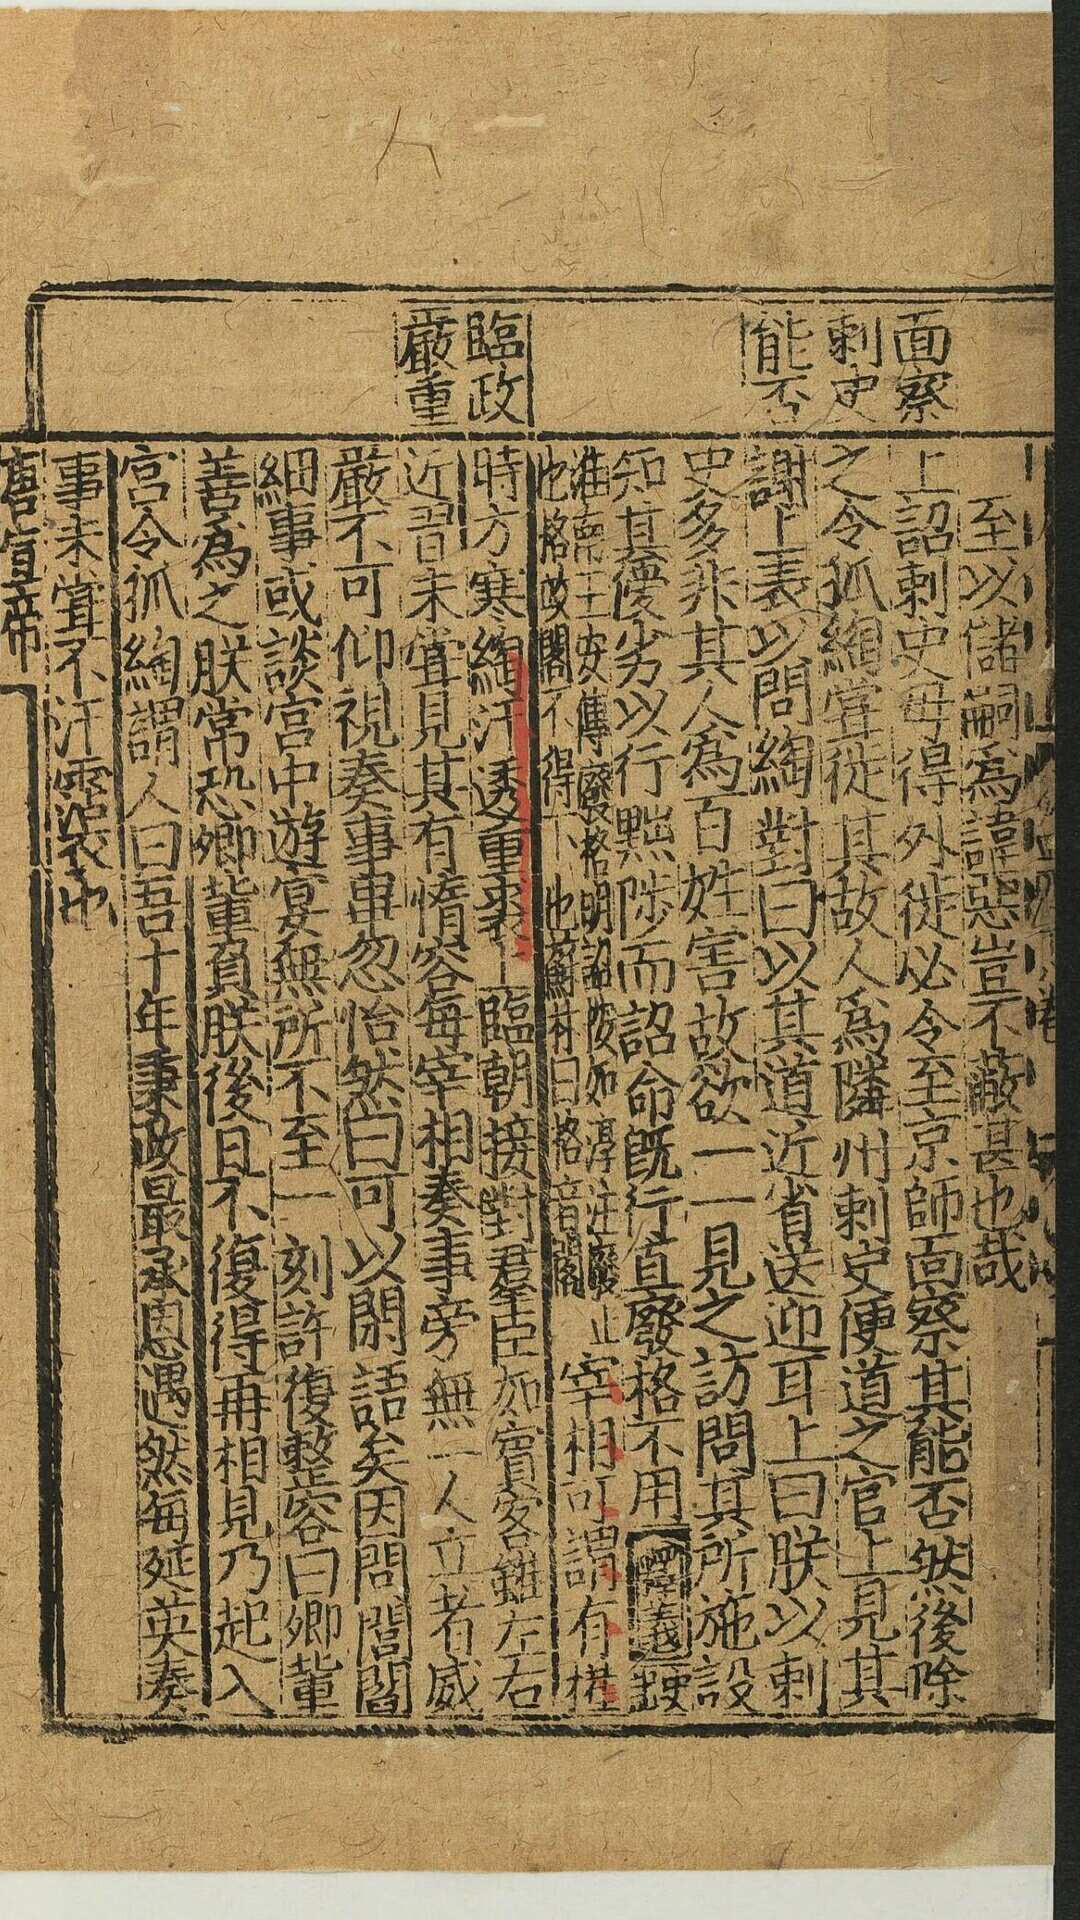 面察
刺史
能否
臨政
嚴重
至以儲嗣為諱惡豈不蔽甚也哉
上詔刺史毋得外徙必令至京師面察其能否然後除
之令狐綯嘗徙其故人為隣州刺史便道之官上見其
謝上表以問綯對曰以其道近省送迎耳上曰朕以刺
史多非其人為百姓害故欲一一見之訪問其所施設
知其優劣以行黜陟而詔命既行直廢格不用【釋義】史
淮南王安傳廢格明詔按如淳注廢
也格攱閣不得下也蕭林曰格音閣
止宰相可謂有權
時方寒綯汗透重裘上臨朝接對羣臣如賓客雖左右
近習未嘗見其有惰容每宰相奏事旁無一人立者威
嚴不可仰視奏事畢忽怡然曰可以閒語矣因問閭閻
細事或談宮中遊宴無所不至一刻許復整容曰卿輩
善為之朕常恐卿輩負朕後日不復得再相見乃起入
宮令狐綯謂人曰吾十年秉政最承恩遇然每延英奏
事未嘗不汗霑衣也
唐宣帝